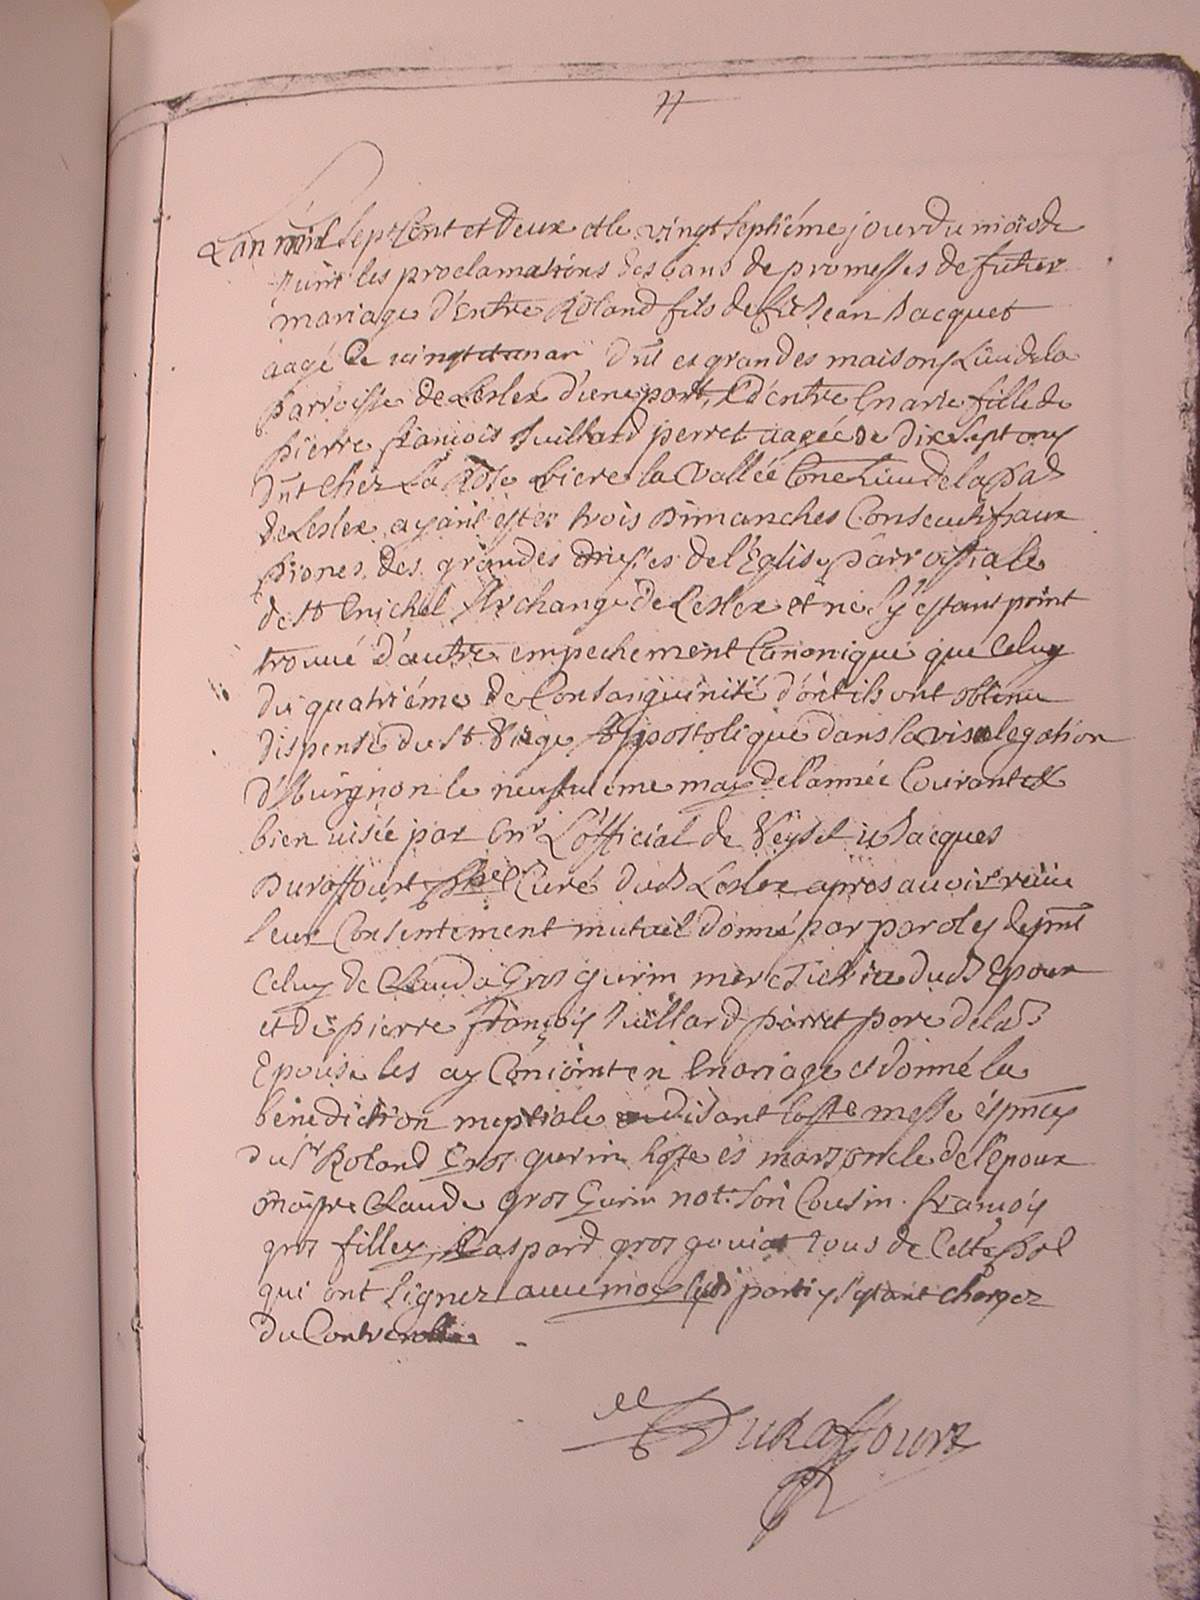 Lan mil Sept Cent et Deux et le vingt Septiéme jour du mois de
Juin les proclamations des bans de promesses de futur
mariage d'Entre Roland fils de fû Jean Jacquet
aagé de vingt et un an du es grandes maisons Lieu de la
parroisse de Leslex d'une part, & d'entre Marie fille de
pierre françois Juillard perret aagée de dix Sept ans
du chez La Rose riere la Vallée Lieu de la
de Leslex ayant estez trois Dimanches Consecutifs aux
des grandes messes de l'Eglise parroissiale
de St Michel Archange de Leslex et ne S'y estant point
trouvé d'autre empechement Canonique que Celuy
du quatriéme de Consanguinité dont ils ont obtenu
dispense du St Siege Appostolique dans la vise legation
d'Avignon le neufvieme may de l'année Courante &
bien visée par Mr L'official de Jacques
Duraffourt Curé dud Leslex apres avoir
leur Consentement mutuel donné par paroles de pnt
Celuy de Clauda Gros gurin mere dud Epoux
et du pierre françois Juillard perret pere de lad
Epouse les ay Conioint en Mariage et donné la
bénediction nuptiale disant messe és pnces
du Sr Roland Gros gurin oncle de l'Epoux
maistre Claude gros Gurin not. son Cousin. françois
gros filley, Gaspard gros tous de Cette
qui ont Signez avec moy parties s'estant chargez
du Controolle.
Duraffourt